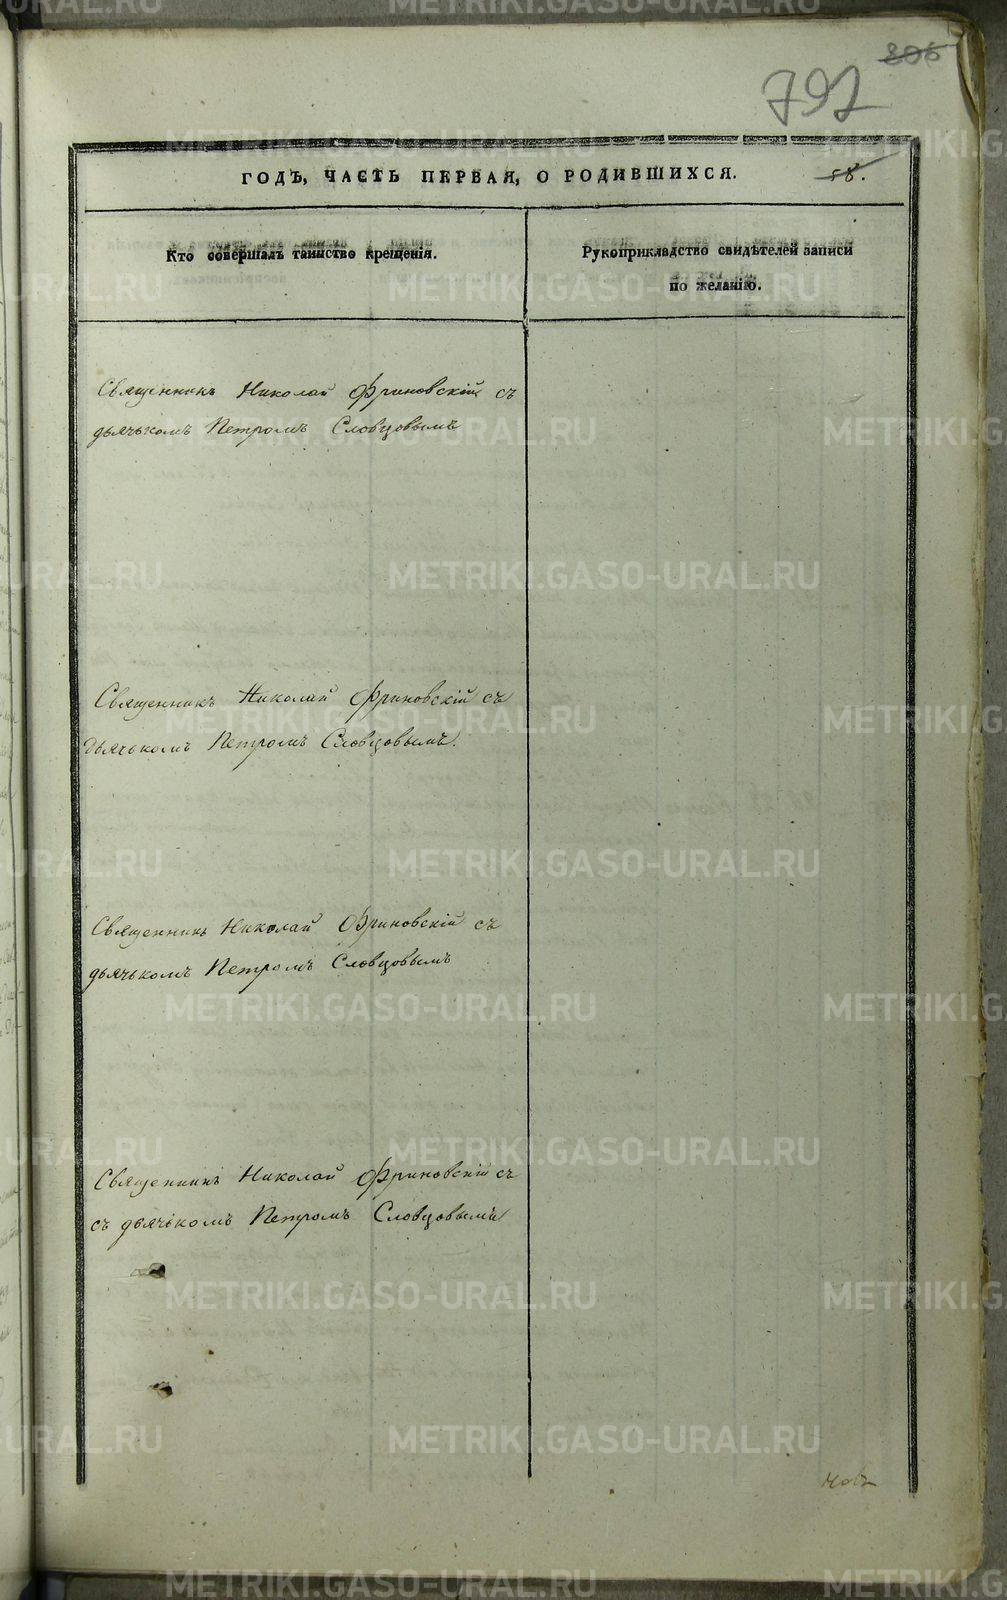 806
792
ГОДЪ, ЧАСТЬ ПЕРВАЯ, О РОДИВШИХСЯ.
58.
Кто совершалъ таинство крещенія.
Рукоприкладство свидѣтелей записи
по желанію.
Священникъ Николай Фриновскій съ
дьячькомъ Петромъ Словцовымъ
Священникъ Николай Фриновскій съ
дьячькомъ Петромъ Словцовымъ.
Священникъ Николай Фриновскій съ
дьячькомъ Петромъ Словцовымъ
Священникъ Николай Фриновскій съ
съ дьячькомъ Петромъ Словцовымъ
METRIKI.GASO-URAL.RU